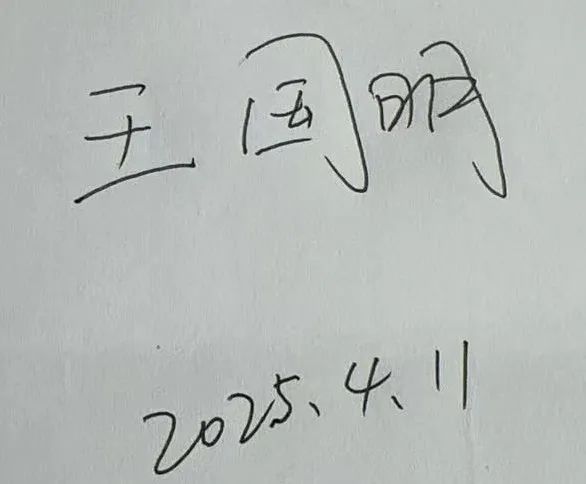 王国明
2025.4.11